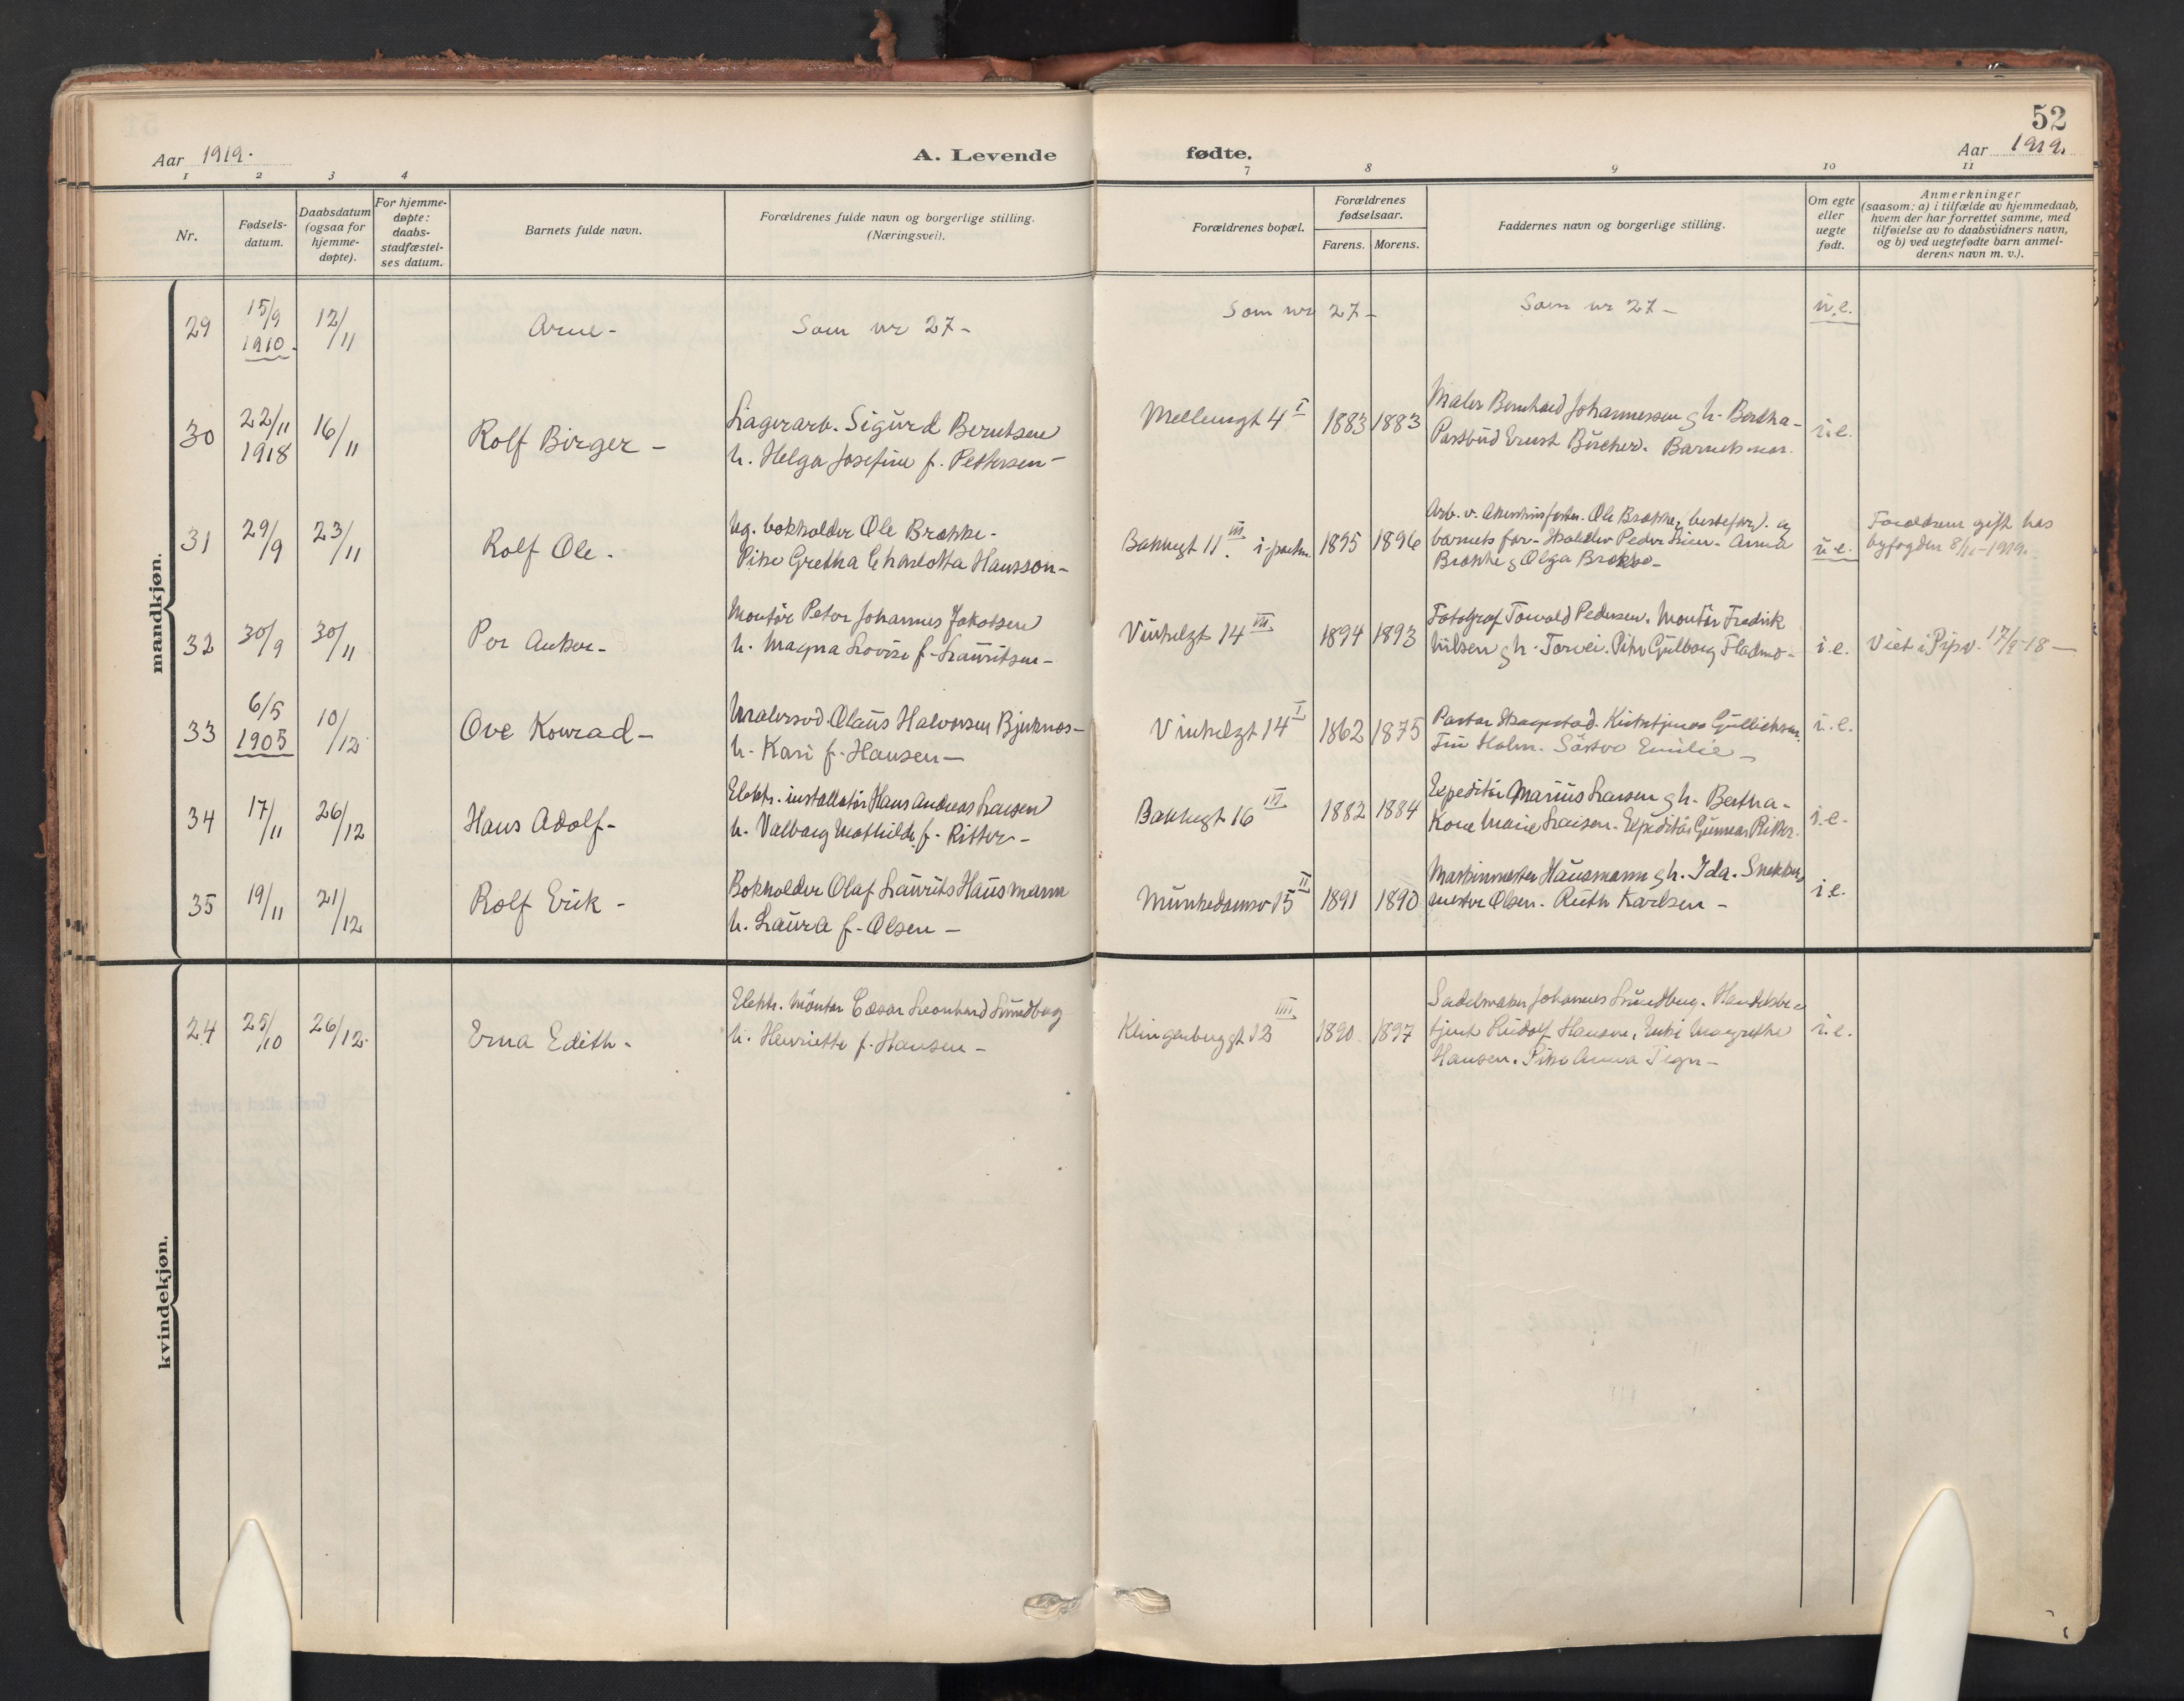 52
Aar 1919.
A. Levende fødte.
Aar 1919.
1 2 3 4 7 8 9 10 11
Nr.
Fødsels-
datum.
Daabsdatum
(ogsaa for
hjemme-
døpte).
For hjemme-
døpte:
daabs-
stadfæstel-
ses datum.
Barnets fulde navn.
Forældrenes fulde navn og borgerlige stilling.
(Næringsvei).
Forældrenes bopæl.
Forældrenes
fødselsaar.
Farens. Morens.
Faddernes navn og borgerlige stilling.
Om egte
eller
uegte
født.
Anmerkninger
(saasom: a) i tilfælde av hjemmedaab,
hvem der har forrettet samme, med
tilføielse av to daabsvidners navn,
og b) ved uegtefødte barn anmel-
derens navn m. v.).
mandkjøn.
29
15/9
1910.
12/11
Arne -
Som nr 27 -
Som nr 27 -
Som nr 27 -
u.e.
30
22/11
1918
16/11
Rolf Birger -
Lagerarb. Sigurd Berntsen
h. Helga Josefine f. Pettersen -
Mellemgt 4 I
1883 1883
Maler Bernhard Johannessen g h. Bertha -
Postbud Ernst Bücher. Barnets mor.
i.e.
31
29/9
23/11
Rolf Ole -
Ug. bokholder Ole Brokke -
Pike Gretha Charlotta Hansson -
Bakkegt 11 III
1895 1896
Ole Brokke, bestefar). og
barnets far - Peder Lien - Anna
Brokke g Olga Brokke -
u.e.
Forældrene gift hos
byfogden 8/11 - 1919.
32
30/9
30/11
Per Anker -
Montör Peter Johannes Jakobsen
h. Magna Lovise f. Lauritsen -
Vinkelgt 14 III
1894 1893
Fotograf Torvald Pedersen. Montör Fredrik
Nilsen g h. Pike Gulborg Fladmo -
i.e.
Viet i Pipv. 17/9-18 -
33
6/5
1905
10/12
Ove Konrad -
Malersvd. Olaus Halvorsen Bjerknes -
h. Kari f. Hansen -
Vinkelgt 14 I
1862 1875
Pastor Skagestad. Kirketjener Gulliksen.
Holm. Söster Emilie -
i.e.
34
17/11
26/12
Hans Adolf -
Elektr. installatör Hans Andreas Larsen
h. Valborg Mathilde f. Ritter -
Bakkegt 16 III
1882 1884
Expeditör Marius Larsen g h. Bertha -
Kone Marie Larsen. Expeditör Gunnar Ritter.
i.e.
35
19/11
21/12
Rolf Erik -
Bokholder Olaf Laurits Hausmann
h. Laura f. Olsen -
Munkedamsv 15 II
1891 1890
Maskinmester Hausmann g h. Ida. Snekker
mester Olsen. Ruth Karlsen -
i.e.
kvindekjøn.
24
25/10
26/12.
Erna Edith -
Elektr. Montör Cæsar Leonhard Lundberg
h. Henriette f. Hansen -
Klingenberggt 13 IIII
1890 1897
Sadelmaker Johannes Lundberg. Handelsbe-
tjent Rudolf Hansen. Enke Margrethe
Hansen. Pike Anna Tegn -
i.e.